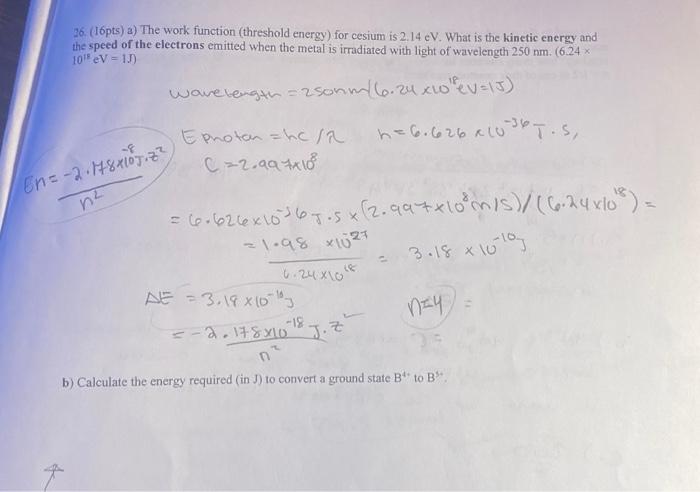 26. (16pts) a) The work function (threshold energy) for cesium is 2.14 eV. What is the kinetic energy and
the speed of the electrons emitted when the metal is irradiated with light of wavelength 250 nm. (6.24 ×
10¹⁸ eV = 1J)
wavelength = 250nm (6.24 x10¹⁸ eV=1J)
E photon = hc/λ h=6.626 x10⁻³⁶ J.s,
C = 2.997x10⁸
En = -2.178x10⁻⁸J.z² / n²
= 6.626x10⁻³⁶ J.s x (2.997x10⁸ m/s)/(6.24x10¹⁸) =
= 1.98 x10⁻²⁷ / 6.24x10¹⁸ = 3.18 x 10⁻¹⁰J
ΔE = 3.18x10⁻¹⁰J n=4 =
= -2.178x10⁻¹⁸ J.z² / n²
b) Calculate the energy required (in J) to convert a ground state B⁴⁺ to B⁵⁺.